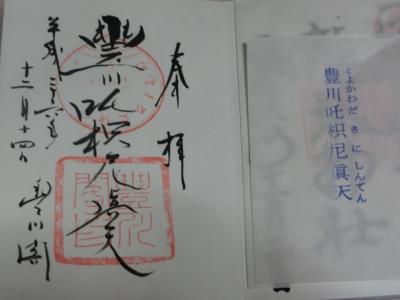 奉拝
豊川吒枳尼眞天
平成二十六年
十二月十四日
豊川閣
豊川閣印
とよかわだ き に しんてん
豊川吒枳尼眞天